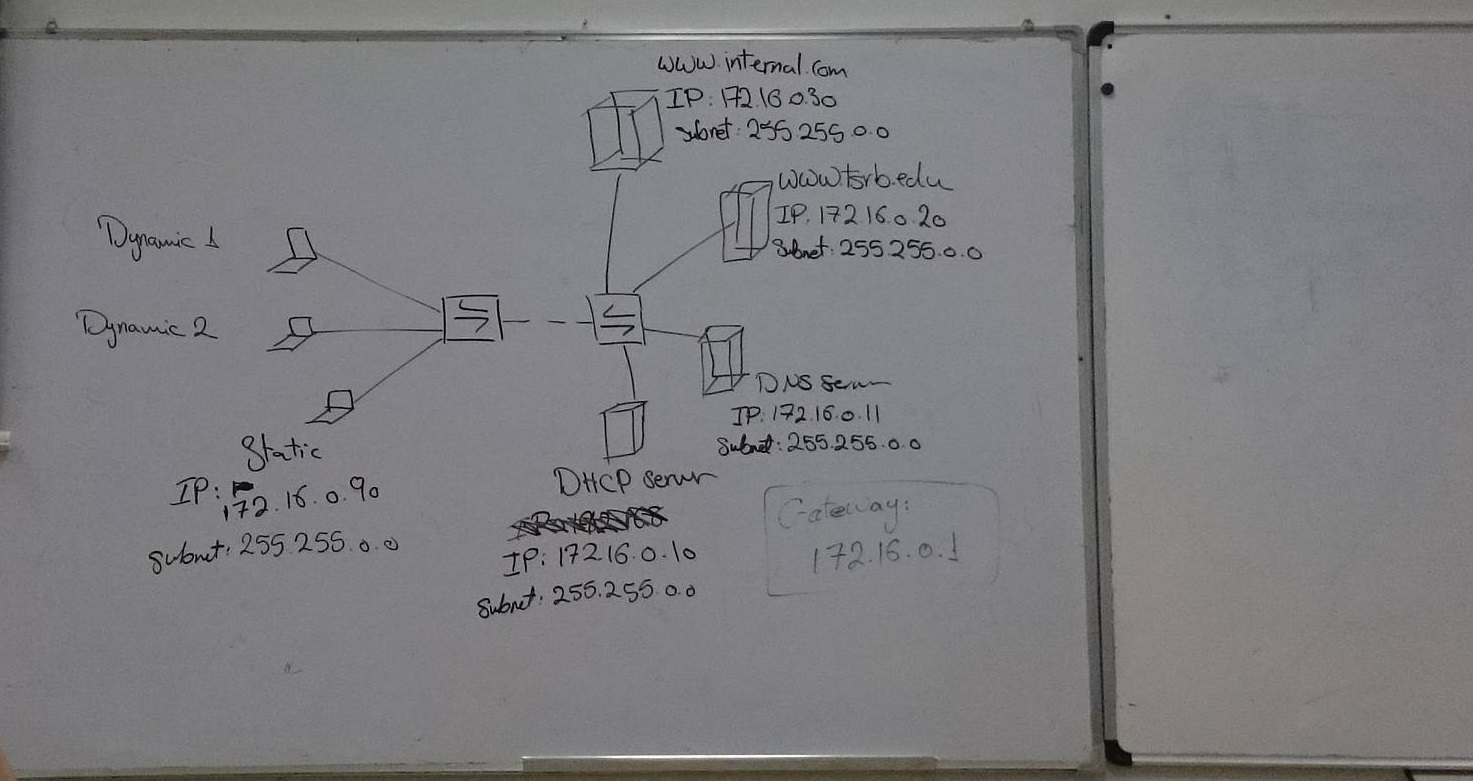 www.internal.com
IP: 172.16.0.30
subnet: 255.255.0.0
www.tsrb.edu
IP: 172.16.0.20
Subnet: 255.255.0.0
Dynamic 1
Dynamic 2
DNS Server
IP: 172.16.0.11
Subnet: 255.255.0.0
Static
IP: 172.16.0.90
subnet: 255.255.0.0
DHCP server
IP: 172.16.0.10
Subnet: 255.255.0.0
Gateway:
172.16.0.1